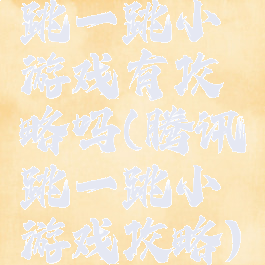 跳一跳小
游戏有攻
略吗(腾讯
跳一跳小
游戏攻略)